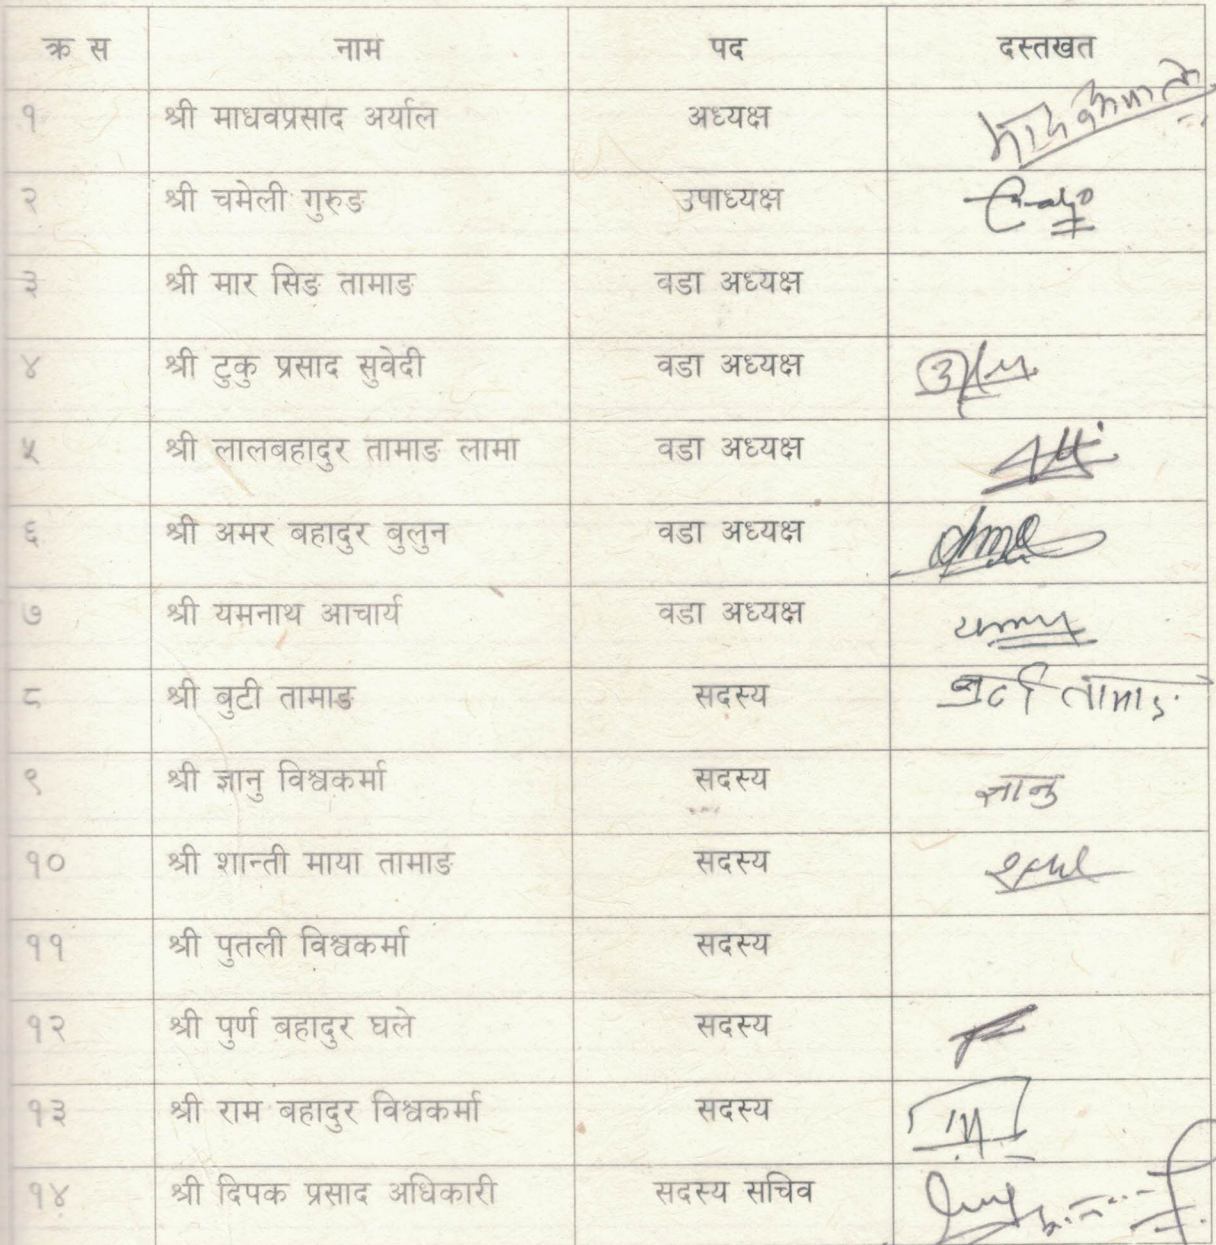 क्र स नाम पद दस्तखत
१ श्री माधवप्रसाद अर्याल अध्यक्ष
२ श्री चमेली गुरुङ उपाध्यक्ष
३ श्री मार सिङ तामाङ वडा अध्यक्ष
४ श्री टुकु प्रसाद सुवेदी वडा अध्यक्ष
५ श्री लालबहादुर तामाङ लामा वडा अध्यक्ष
६ श्री अमर बहादुर बुलुन वडा अध्यक्ष
७ श्री यमनाथ आचार्य वडा अध्यक्ष
८ श्री बुटी तामाङ सदस्य बुटी तामाङ
९ श्री ज्ञानु विश्वकर्मा सदस्य ज्ञानु
१० श्री शान्ती माया तामाङ सदस्य
११ श्री पुतली विश्वकर्मा सदस्य
१२ श्री पुर्ण बहादुर घले सदस्य
१३ श्री राम बहादुर विश्वकर्मा सदस्य
१४ श्री दिपक प्रसाद अधिकारी सदस्य सचिव